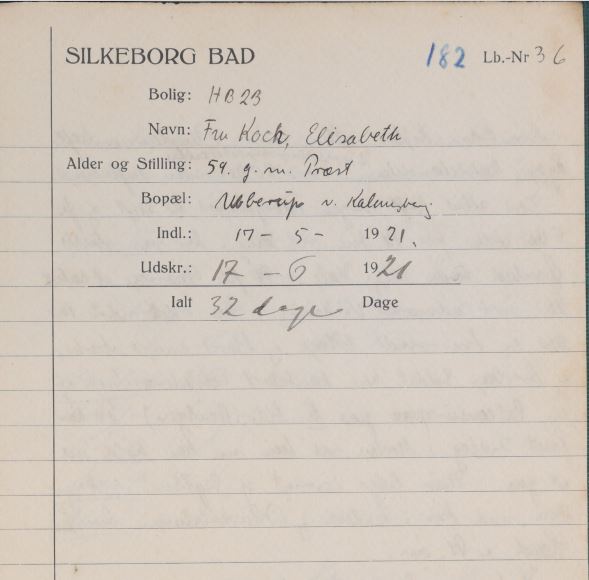 SILKEBORG BAD 182 Lb.-Nr 36
Bolig: HB 23
Navn: Fru Koch, Elisabeth
Alder og Stilling: 59. g. m. Præst
Bopæl: Ubberup v. Kalundborg.
Indl.: 17 - 5 - 1921.
Udskr.: 17 - 6 1921
Ialt 32 dage Dage